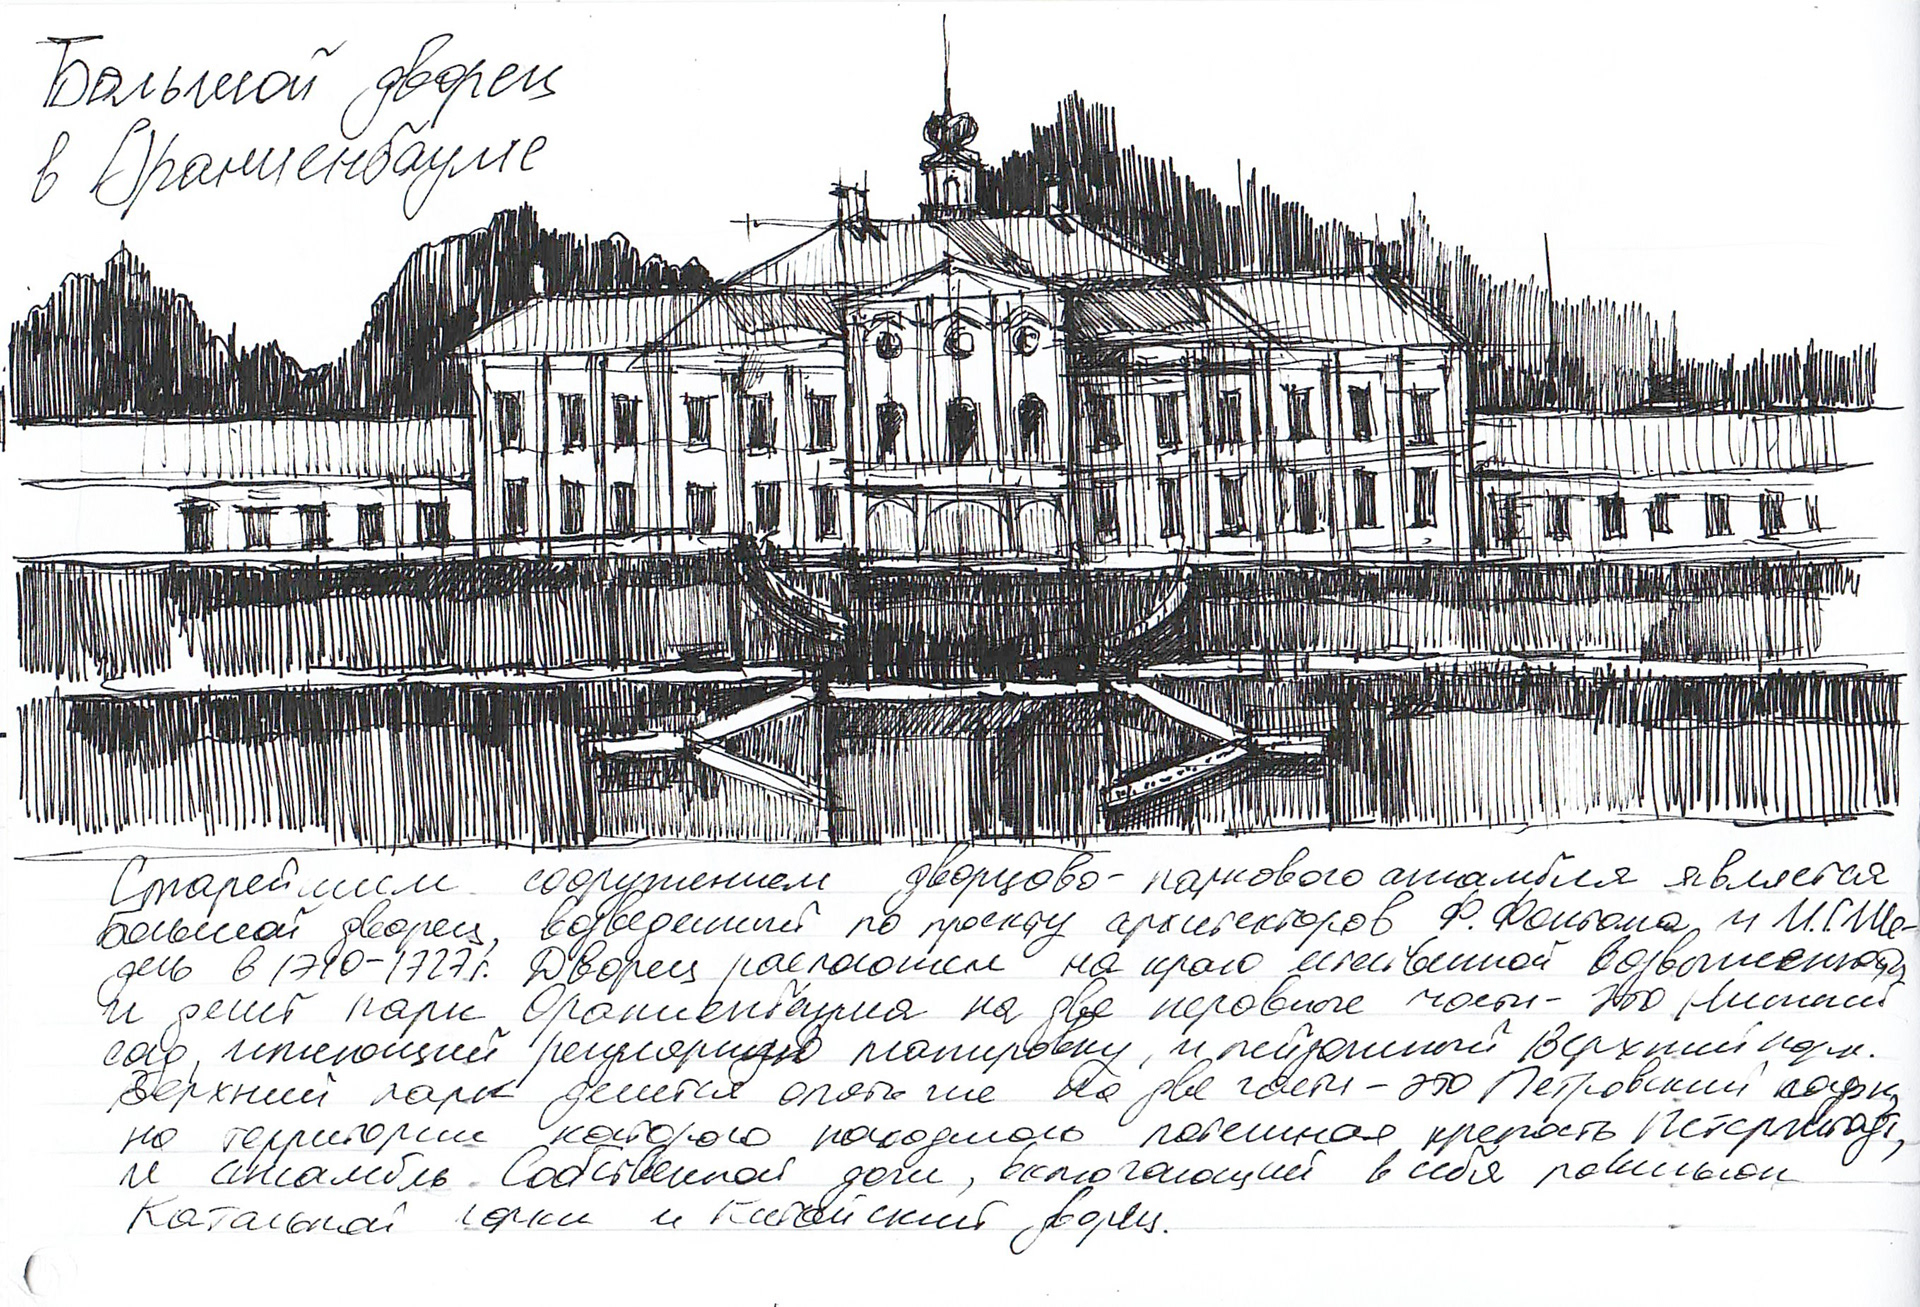 Большой дворец
в Ораниенбауме
Старейшим сооружением дворцово-паркового ансамбля является
Большой дворец, возведенный по проекту архитекторов Ф. Фонтана и И.Г. Ше-
дель в 1710-1727г. Дворец расположен на краю естественной возвышенности
и делит парк Ораниенбаума на две неровные части - это Нижний
сад, имеющий регулярную планировку, и пейзажный Верхний парк.
Верхний парк делится опять же на две части - это Петровский парк,
на территории которого находилась потешная крепость Петерштадт,
и ансамбль Собственной дачи, включающий в себя павильон
Катальной горки и Китайский дворец.